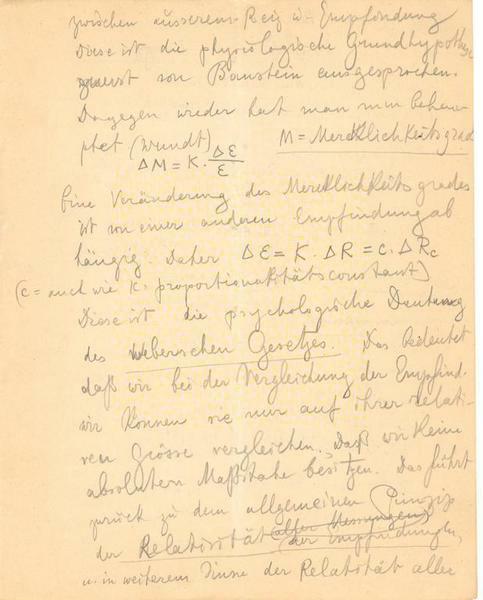 zwischen äusserem Reiz u. Empfindung
Diese ist die physiologische Grundhypothese
zuerst von Bernstein ausgesprochen.
Dagegen wieder hat man nun behau-
ptet (Wundt) M = Merklichkeitsgrad
ΔM = K · Δε/ε
Eine Veränderung des Merklichkeitsgrades
ist von einer anderen Empfindung ab
hängig. Daher Δε = K · ΔR = c · ΔRc
(c = auch wie K. proportionalitätsconstant)
Diese ist die psychologische Deutung
des Weberschen Gesetzes. Das bedeutet
daß wir bei der Vergleichung der Empfind.
wir können sie nur auf ihrer relati-
ven Grösse vergleichen. Daß wir keine
absoluten Maßstabe besitzen. Das führt
zurück zu dem allgemeinen Prinzip
der Relativität aller Messungen der Empfindungen,
u. in weiterem Sinne der Relatität aller